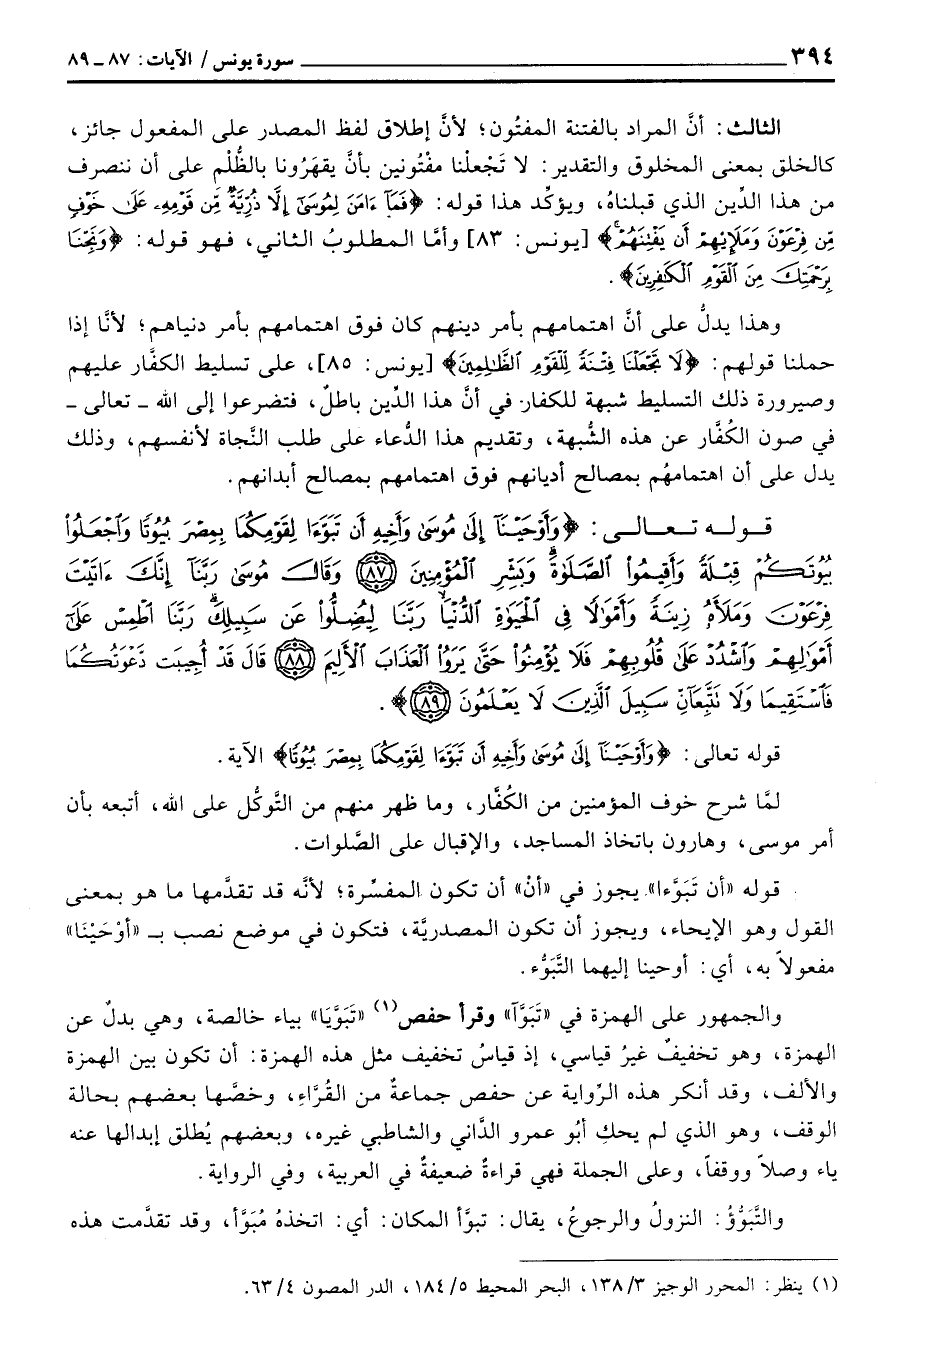 ٣٩٤ سورة يونس / الآيات: ٨٧ ـ ٨٩
الثالث: أنَّ المراد بالفتنة المفتُون؛ لأنَّ إطلاق لفظ المصدر على المفعول جائز،
كالخلق بمعنى المخلوق والتقدير: لا تَجْعلْنا مفْتُونين بأنَّ يقهَرُونا بالظُّلْم على أن ننصرف
من هذا الدِّين الذي قبلناهُ، ويؤكِّد هذا قوله: ﴿فَمَآ ءَامَنَ لِمُوسَىٰٓ إِلَّا ذُرِّيَّةٌ مِّن قَوْمِهِۦ عَلَىٰ خَوْفٍ
مِّن فِرْعَوْنَ وَمَلَإِيْهِمْ أَن يَفْتِنَهُمْ﴾ [يونس: ٨٣] وأمَّا المطلوبُ الثاني، فهو قوله: ﴿وَنَجِّنَا
بِرَحْمَتِكَ مِنَ ٱلْقَوْمِ ٱلْكَٰفِرِينَ﴾.
وهذا يدلُّ على أنَّ اهتمامهم بأمر دينهم كان فوق اهتمامهم بأمر دنياهم؛ لأنَّا إذا
حملنا قولهم: ﴿لَا تَجْعَلْنَا فِتْنَةً لِّلْقَوْمِ ٱلظَّٰلِمِينَ﴾ [يونس: ٨٥]، على تسليط الكفَّار عليهم
وصيرورة ذلك التسليط شبهة للكفار في أنَّ هذا الدِّين باطلٌ، فتضرعوا إلى الله ـ تعالى ـ
في صون الكُفَّار عن هذه الشُّبهة، وتقديم هذا الدُّعاء على طلب النَّجاة لأنفسهم، وذلك
يدل على أن اهتمامهُم بمصالح أديانهم فوق اهتمامهم بمصالح أبدانهم.
قوله تعالى: ﴿وَأَوْحَيْنَآ إِلَىٰ مُوسَىٰ وَأَخِيهِ أَن تَبَوَّءَا لِقَوْمِكُمَا بِمِصْرَ بُيُوتًا وَٱجْعَلُوا۟
بُيُوتَكُمْ قِبْلَةً وَأَقِيمُوا۟ ٱلصَّلَوٰةَ وَبَشِّرِ ٱلْمُؤْمِنِينَ (٨٧) وَقَالَ مُوسَىٰ رَبَّنَآ إِنَّكَ ءَاتَيْتَ
فِرْعَوْنَ وَمَلَأَهُۥ زِينَةً وَأَمْوَٰلًا فِى ٱلْحَيَوٰةِ ٱلدُّنْيَا رَبَّنَا لِيُضِلُّوا۟ عَن سَبِيلِكَ رَبَّنَا ٱطْمِسْ عَلَىٰٓ
أَمْوَٰلِهِمْ وَٱشْدُدْ عَلَىٰ قُلُوبِهِمْ فَلَا يُؤْمِنُوا۟ حَتَّىٰ يَرَوُا۟ ٱلْعَذَابَ ٱلْأَلِيمَ (٨٨) قَالَ قَدْ أُجِيبَت دَّعْوَتُكُمَا
فَٱسْتَقِيمَا وَلَا تَتَّبِعَآنِّ سَبِيلَ ٱلَّذِينَ لَا يَعْلَمُونَ (٨٩)﴾.
قوله تعالى: ﴿وَأَوْحَيْنَآ إِلَىٰ مُوسَىٰ وَأَخِيهِ أَن تَبَوَّءَا لِقَوْمِكُمَا بِمِصْرَ بُيُوتًا﴾ الآية.
لمَّا شرح خوف المؤمنين من الكُفَّار، وما ظهر منهم من التَّوكُّل على الله، أتبعه بأن
أمر موسى، وهارون باتخاذ المساجد، والإقبال على الصَّلوات.
قوله «أن تَبَوَّءا» يجوز في «أنْ» أن تكون المفسِّرة؛ لأنَّه قد تقدَّمها ما هو بمعنى
القول وهو الإيحاء، ويجوز أن تكون المصدريَّة، فتكون في موضع نصب بـ «أوْحَيْنَا»
مفعولاً به، أي: أوحينا إليهما التَّبَوُّء.
والجمهور على الهمزة في «تَبَوَّآ» وقرأ حفص(١) «تَبَوَّيَا» بياء خالصة، وهي بدلٌ عن
الهمزة، وهو تخفيفٌ غيرُ قياسي، إذ قياسُ تخفيف مثل هذه الهمزة: أن تكون بين الهمزة
والألف، وقد أنكر هذه الرِّواية عن حفص جماعةٌ من القُرَّاءِ، وخصَّها بعضهم بحالة
الوقف، وهو الذي لم يحكِ أبُو عمرو الدَّاني والشاطبي غيره، وبعضهم يُطلق إبدالها عنه
ياء وصلاً ووقفاً، وعلى الجملة فهي قراءةٌ ضعيفةٌ في العربية، وفي الرواية.
والتَّبَوُّؤُ: النزولُ والرجوعُ، يقال: تبوَّأ المكان: أي: اتخذهُ مُبَوَّأ، وقد تقدَّمت هذه
(١) ينظر: المحرر الوجيز ١٣٨/٣، البحر المحيط ١٨٤/٥، الدر المصون ٦٣/٤.